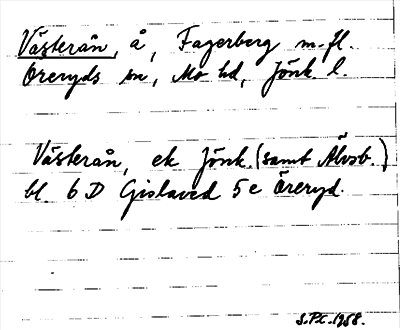 Västerån, å, Fagerberg m.fl.
Öreryds sn, Mo hd, Jönk. l.
Västerån, ek Jönk. (samt Älvsb.)
bl. 6 D Gislaved 5 e Öreryd.
S.P.C. 1958.